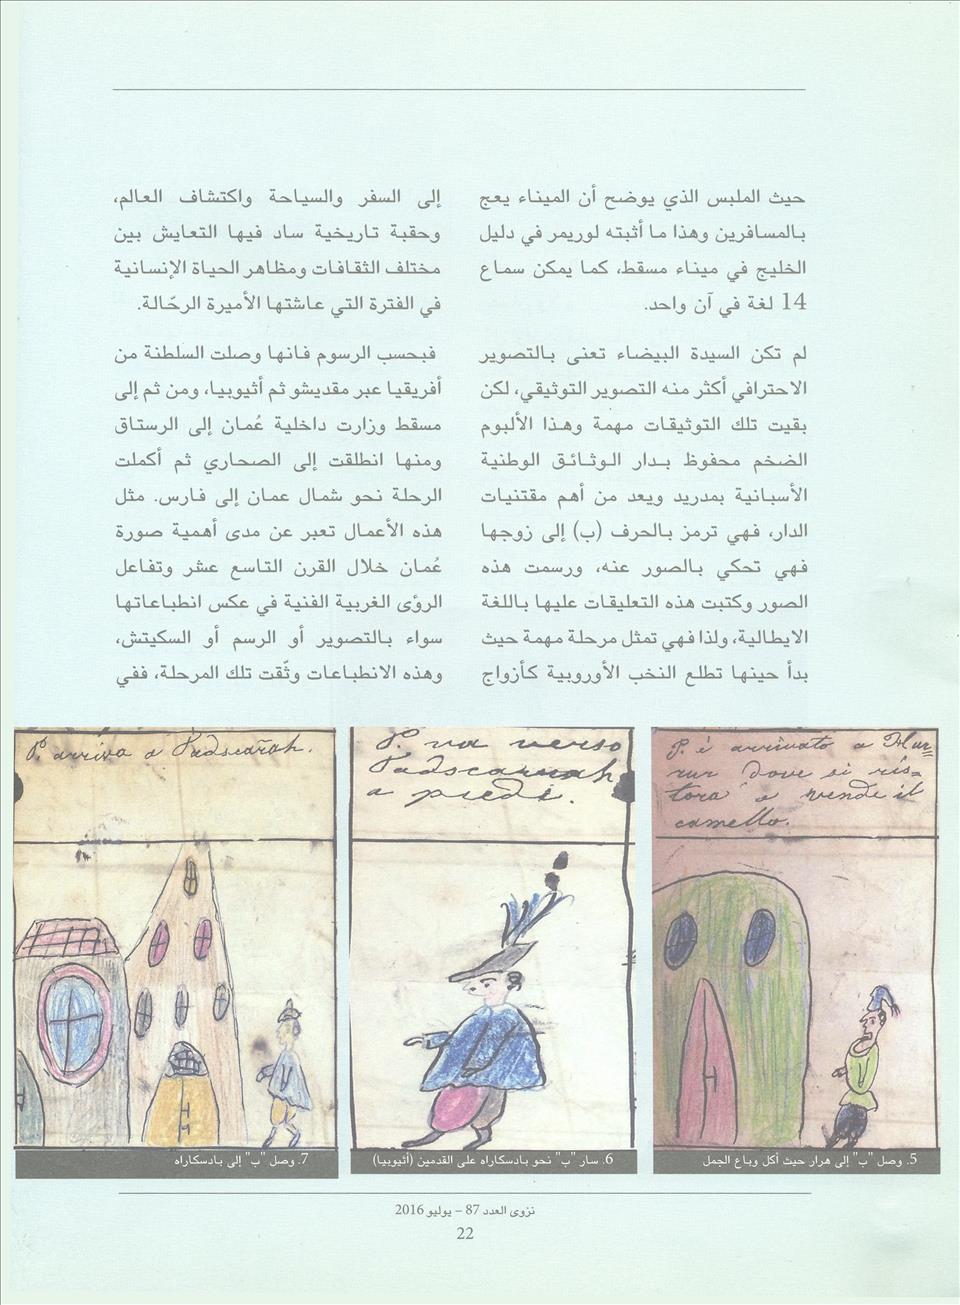 حيث الملبس الذي يوضح أن الميناء يعج
بالمسافرين وهذا ما أثبته لوريمر في دليل
الخليج في ميناء مسقط، كما يمكن سماع
14 لغة في آن واحد.
لم تكن السيدة البيضاء تعنى بالتصوير
الاحترافي أكثر منه التصوير التوثيقي، لكن
بقيت تلك التوثيقات مهمة وهذا الألبوم
الضخم محفوظ بدار الوثائق الوطنية
الأسبانية بمدريد ويعد من أهم مقتنيات
الدار، فهي ترمز بالحرف (ب) إلى زوجها
فهي تحكي بالصور عنه، ورسمت هذه
الصور وكتبت هذه التعليقات عليها باللغة
الايطالية، ولذا فهي تمثل مرحلة مهمة حيث
بدأ حينها تطلع النخب الأوروبية كأزواج
إلى السفر والسياحة واكتشاف العالم،
وحقبة تاريخية ساد فيها التعايش بين
مختلف الثقافات ومظاهر الحياة الإنسانية
في الفترة التي عاشتها الأميرة الرحّالة.
فبحسب الرسوم فانها وصلت السلطنة من
أفريقيا عبر مقديشو ثم أثيوبيا، ومن ثم إلى
مسقط وزارت داخلية عُمان إلى الرستاق
ومنها انطلقت إلى الصحاري ثم أكملت
الرحلة نحو شمال عمان إلى فارس. مثل
هذه الأعمال تعبر عن مدى أهمية صورة
عُمان خلال القرن التاسع عشر وتفاعل
الرؤى الغربية الفنية في عكس انطباعاتها
سواء بالتصوير أو الرسم أو السكيتش،
وهذه الانطباعات وثّقت تلك المرحلة، ففي
P. è arrivato a Hur=
rur dove si ris=
tora e vende il
camello.
5. وصل "ب" إلى هرار حيث أكل وباع الجمل
P. va verso
Padscaruah
a piedi.
6. سار "ب" نحو بادسكاراه على القدمين (أثيوبيا)
P. arriva a Padscarah.
7. وصل "ب" إلى بادسكاراه
نزوى العدد 87 – يوليو 2016
22